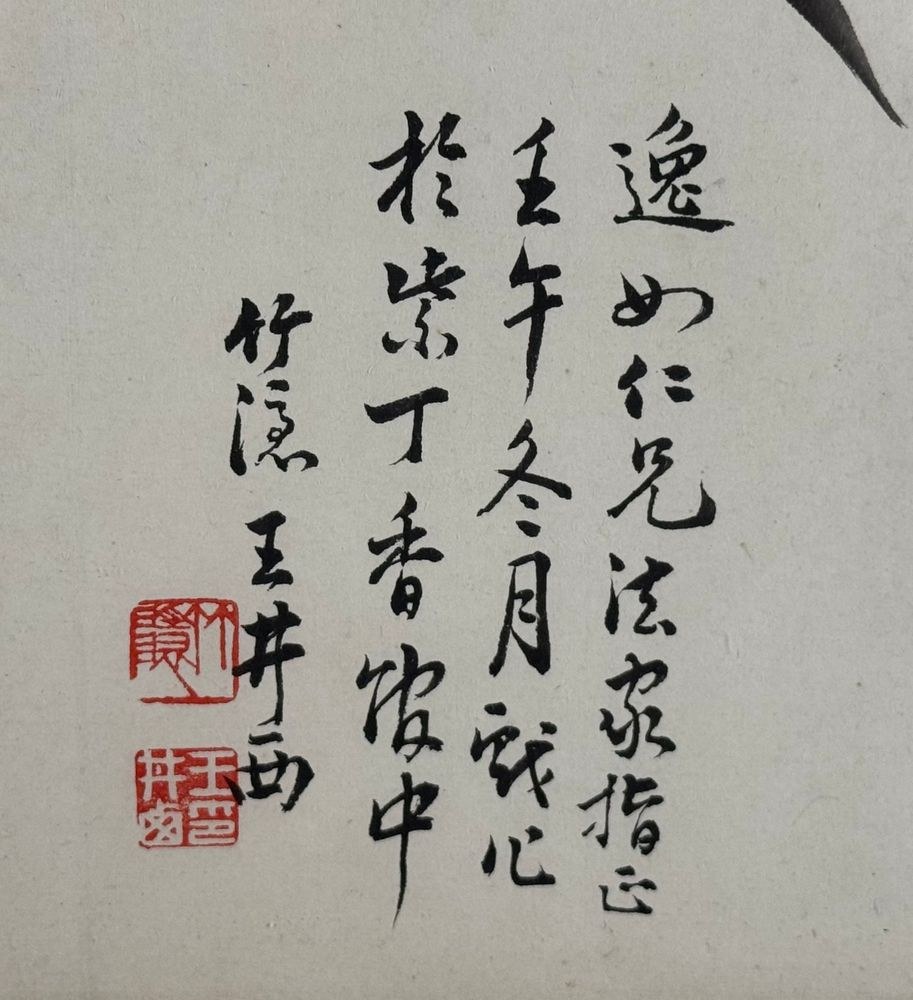 逸如仁兄法家指正
壬午冬月戲作
於紫丁香館中
竹隱王井西
竹隱
王井西印